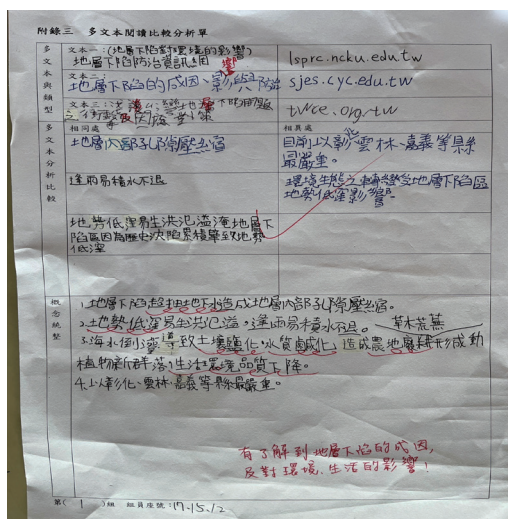 附錄三 多文本閱讀比較分析單
多文本與類型
文本一:(地層下陷對環境的影響)
地層下陷防治資訊網
響
lsprc.ncku.edu.tw
文本二:
地層下陷的成因、影響與防治
sjes.cyc.edu.tw
文本三:
地層下陷問題
之衝擊及因應對策
twce.org.tw
多文本分析比較
相同處
相異處
地層內部孔隙壓縮
目前以彰化雲林、嘉義等縣
最嚴重。
逢雨易積水不退
環境生態之轉變受地層下陷區
地勢低窪影響。
地勢低窪易生洪氾溢淹地層下
陷區因為歷史沈陷累積導致地勢
低窪
概念統整
1.地層下陷超抽地下水造成地層內部孔隙壓縮。
2.地勢低窪易生洪氾溢,逢雨易積水不退。
草木荒蕪
3.海水倒灌導致土壤鹽化,水質鹹化,造成農地廢耕形成動
植物新群落,生活環境品質下降。
4.以彰化、雲林、嘉義等縣最嚴重。
有了解到地層下陷的成因,
及對環境、生活的影響!
第( 1 )組 組員座號:17.15.12